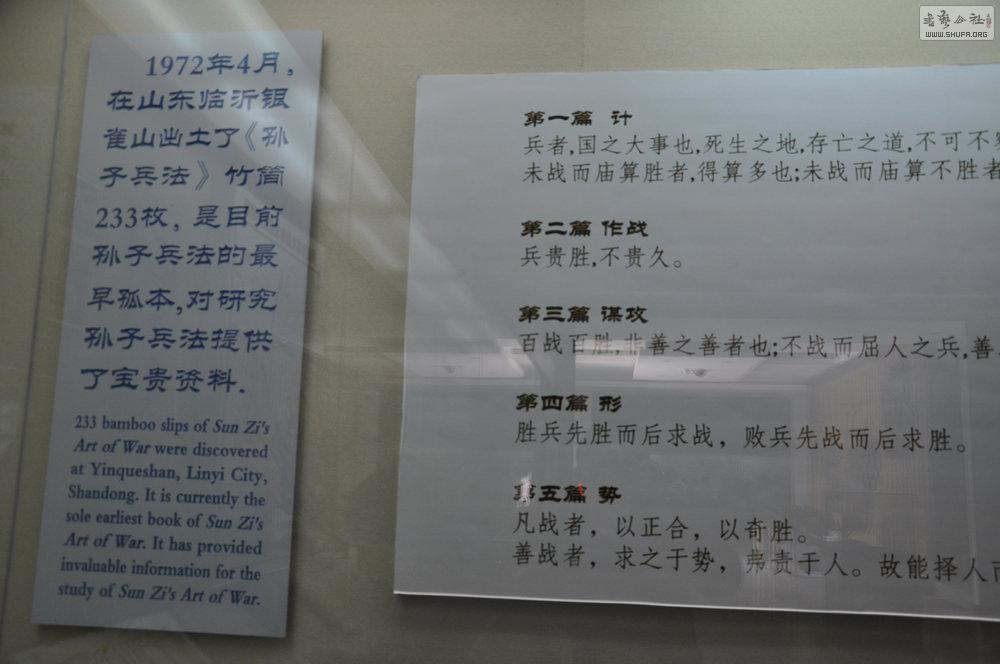 1972年4月，
在山东临沂银
雀山出土了《孙
子兵法》竹简
233枚，是目前
孙子兵法的最
早孤本，对研究
孙子兵法提供
了宝贵资料．
233 bamboo slips of Sun Zi's
Art of War were discovered
at Yinqueshan, Linyi City,
Shandong. It is currently the
sole earliest book of Sun Zi's
Art of War. It has provided
invaluable information for the
study of Sun Zi's Art of War.
第一篇 计
兵者,国之大事也,死生之地,存亡之道,不可不
未战而庙算胜者,得算多也;未战而庙算不胜者
第二篇 作战
兵贵胜,不贵久。
第三篇 谋攻
百战百胜,非善之善者也;不战而屈人之兵,善
第四篇 形
胜兵先胜而后求战，败兵先战而后求胜。
第五篇 势
凡战者，以正合，以奇胜。
善战者，求之于势，弗责于人。故能择人
书艺公社
WWW.SHUFA.ORG